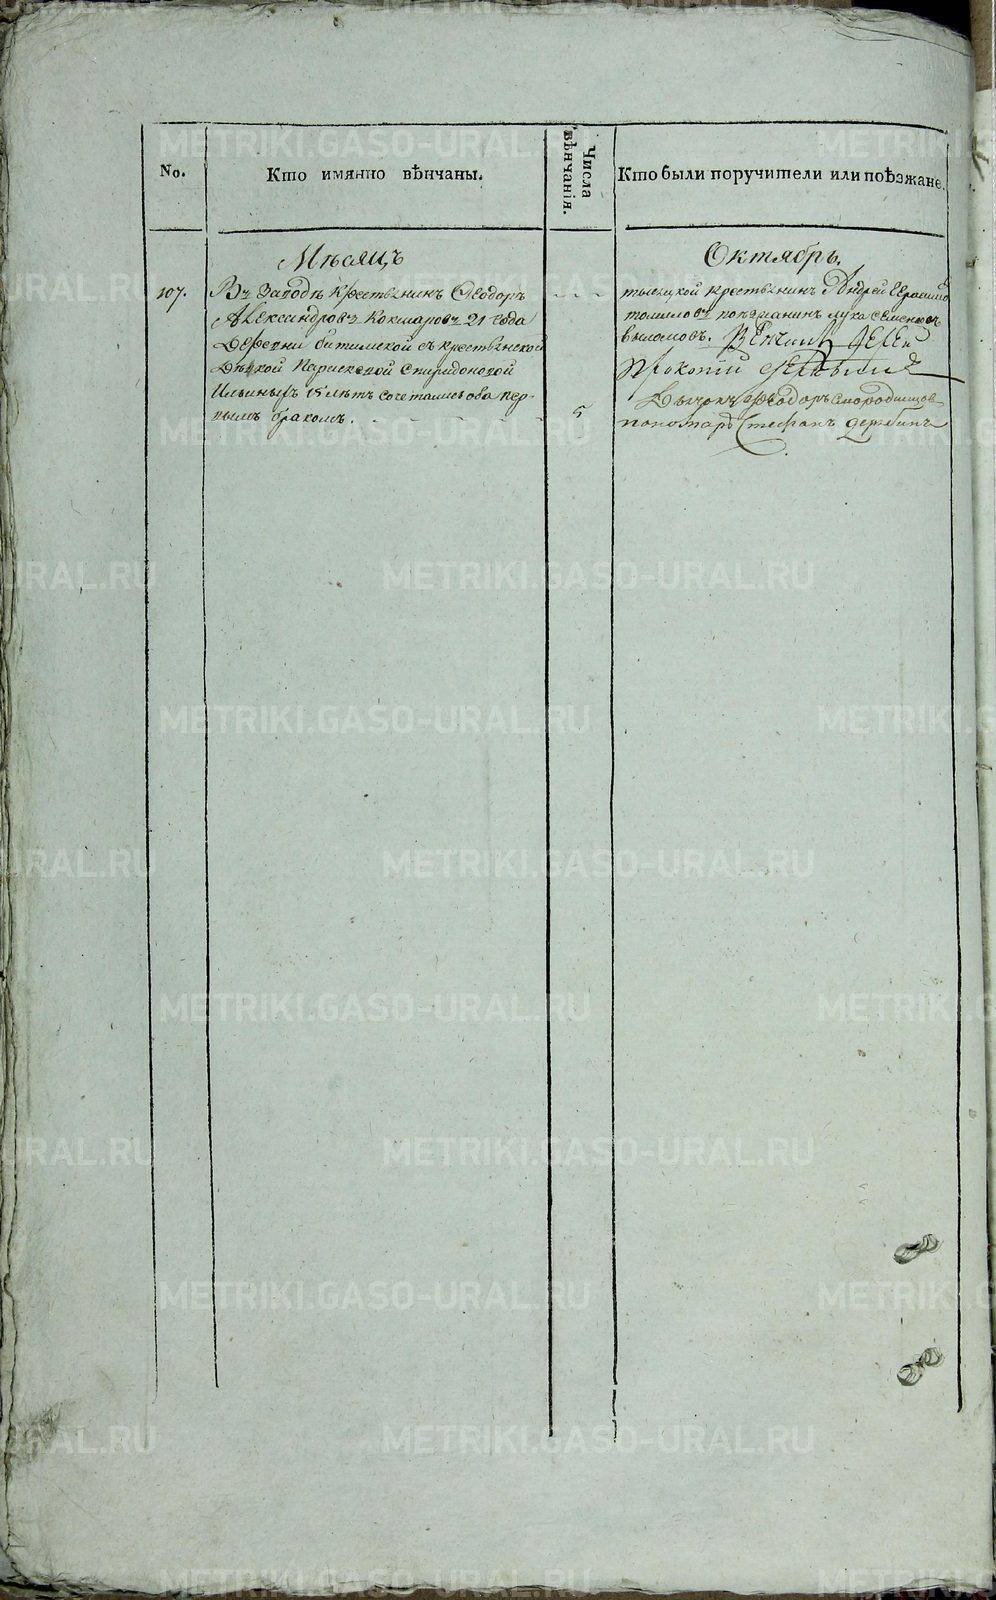 No.
Кто имянно вѣнчаны.
Числа вѣнчанія.
Кто были поручители или поѣзжане.
Мѣсяцъ
Октябрь.
107.
Въ Заводѣ крестьянинъ Ѳеодоръ
Александровъ Кокшаровъ 21 года
деревни битимской съ крестьянской
дѣвкой Параскевой Спиридоновой
Ильиныхъ 15 лѣтъ сочетались оба пер-
вымъ бракомъ.
5
тысяцкой крестьянинъ Андрей
Томиловъ поѣзжанинъ лука Семеновъ
Вѣнчалъ
Прокопій
Дьячокъ Ѳеодоръ Смородинцов
пономарь Стефанъ
METRIKI.GASO-URAL.RU